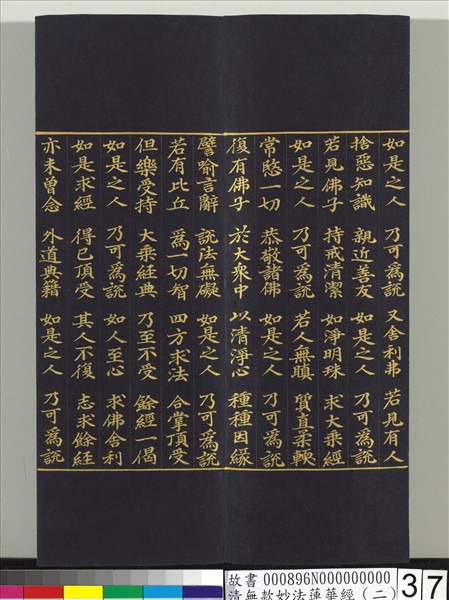 如是之人 乃可為說 又舍利弗 若見有人
捨惡知識 親近善友 如是之人 乃可為說
若見佛子 持戒清潔 如淨明珠 求大乘經
如是之人 乃可為說 若人無瞋 質直柔輭
常愍一切 恭敬諸佛 如是之人 乃可為說
復有佛子 於大眾中 以清淨心 種種因緣
譬喻言辭 說法無礙 如是之人 乃可為說
若有比丘 為一切智 四方求法 合掌頂受
但樂受持 大乘經典 乃至不受 餘經一偈
如是之人 乃可為說 如人至心 求佛舍利
如是求經 得已頂受 其人不復 志求餘經
亦未曾念 外道典籍 如是之人 乃可為說
故書 000896N000000000
清無款妙法蓮華經(二)
37